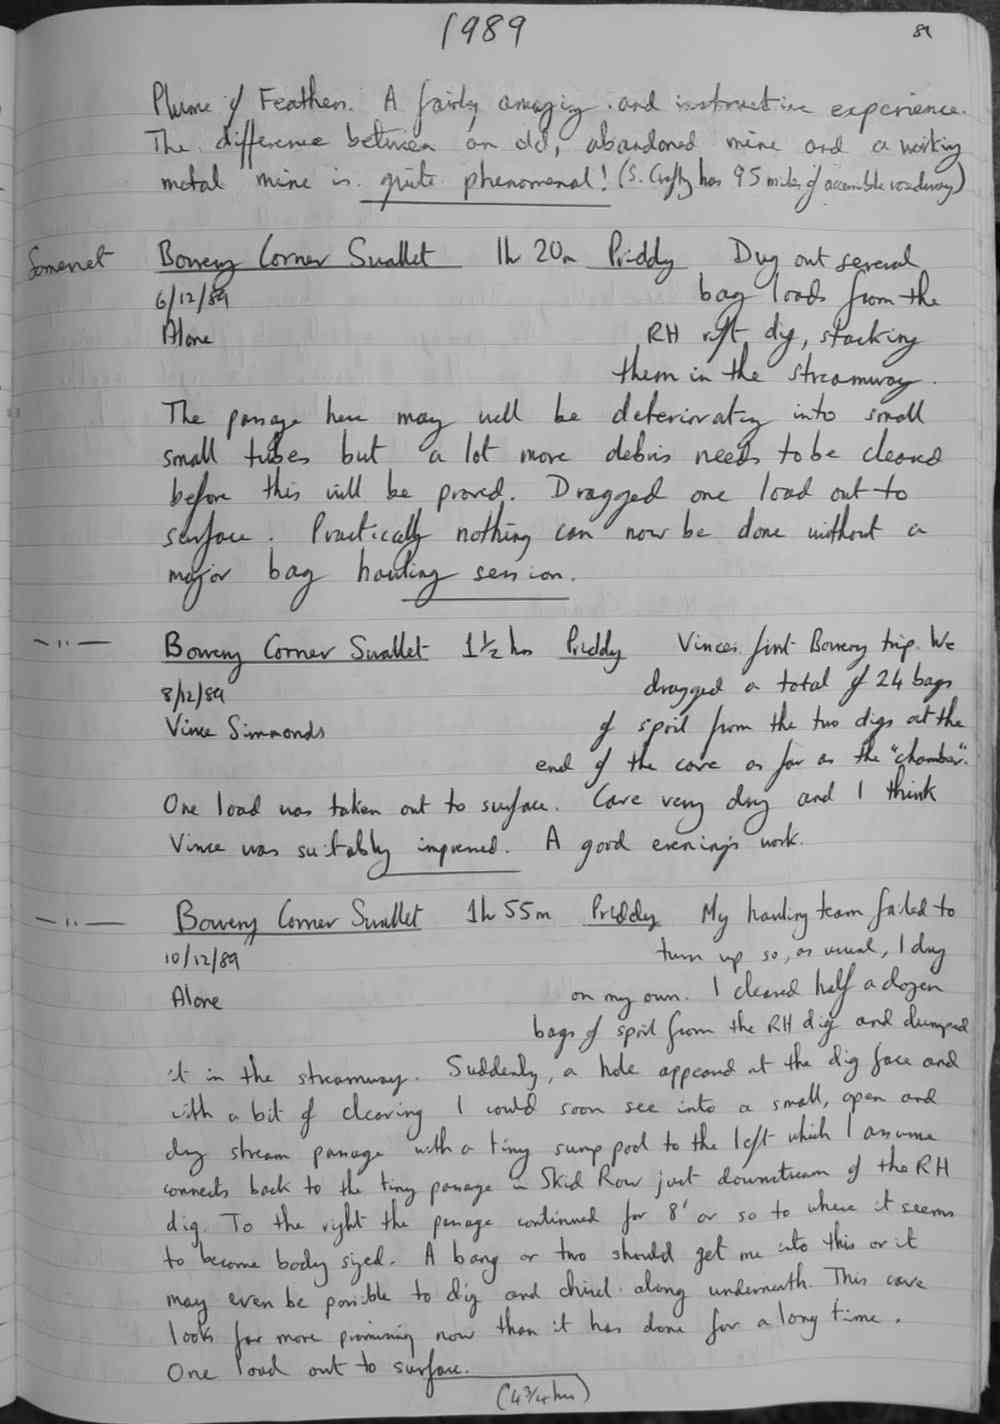 1989
89
Plume of Feathers. A fairly amazing and instructive experience.
The difference between an old, abandoned mine and a working
metal mine is quite phenomenal! (S. Crofty has 95 miles of accessible roadway)
Somerset Bowery Corner Swallet 1h 20m Priddy Dug out several
6/12/89 bag loads from the
Alone RH rift dig, stacking
them in the streamway.
The passage here may well be deteriorating into small
small tubes but a lot more debris needs to be cleared
before this will be proved. Dragged one load out to
surface. Practically nothing can now be done without a
major bag hauling session.
—"— Bowery Corner Swallet 1½ hrs Priddy Vinces first Bowery trip. We
8/12/89 dragged a total of 24 bags
Vince Simmonds of spoil from the two digs at the
end of the cave as far as the "chamber".
One load was taken out to surface. Cave very dry and I think
Vince was suitably impressed. A good evenings work.
—"— Bowery Corner Swallet 1h 55m Priddy My hauling team failed to
10/12/89 turn up so, as usual, I dug
Alone on my own. I cleared half a dozen
bags of spoil from the RH dig and dumped
it in the streamway. Suddenly, a hole appeared at the dig face and
with a bit of clearing I could soon see into a small, open and
dry stream passage with a tiny sump pool to the left which I assume
connects back to the tiny passage in Skid Row just downstream of the RH
dig. To the right the passage continued for 8' or so to where it seems
to become body sized. A bang or two should get me into this or it
may even be possible to dig and chisel along underneath. This cave
looks far more promising now than it has done for a long time.
One load out to surface.
(4¾ hrs)